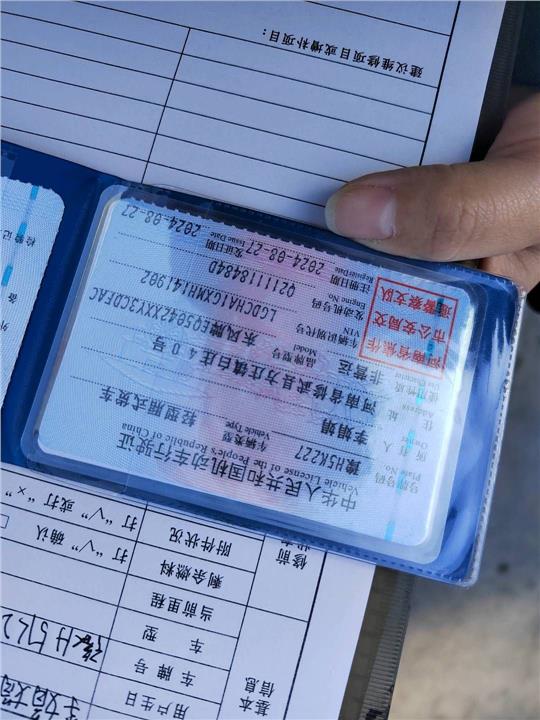 中华人民共和国机动车行驶证
Vehicle License of the People's Republic of China
号牌号码
Plate No.
豫H5K227
车辆类型
Vehicle Type
轻型厢式货车
所有人
Owner
李娟娟
住址
Address
河南省修武县方庄镇白庄40号
使用性质
Use Character
非营运
品牌型号
Model
东风牌EQ5042XXY3CDFAC
车辆识别代号
VIN
LGDCHA1GXMH141902
发动机号码
Engine No.
Q2111184840
注册日期
Register Date
2024-08-27
发证日期
Issue Date
2024-08-27
河南省焦作
市公安局交
通警察支队
检验记
建议维修项目或增补项目：
基本
信息
用户生日
车牌号
车型
当前里程
修前
剩余燃料
附件状况
打“√”确认
打“√”或打“×”